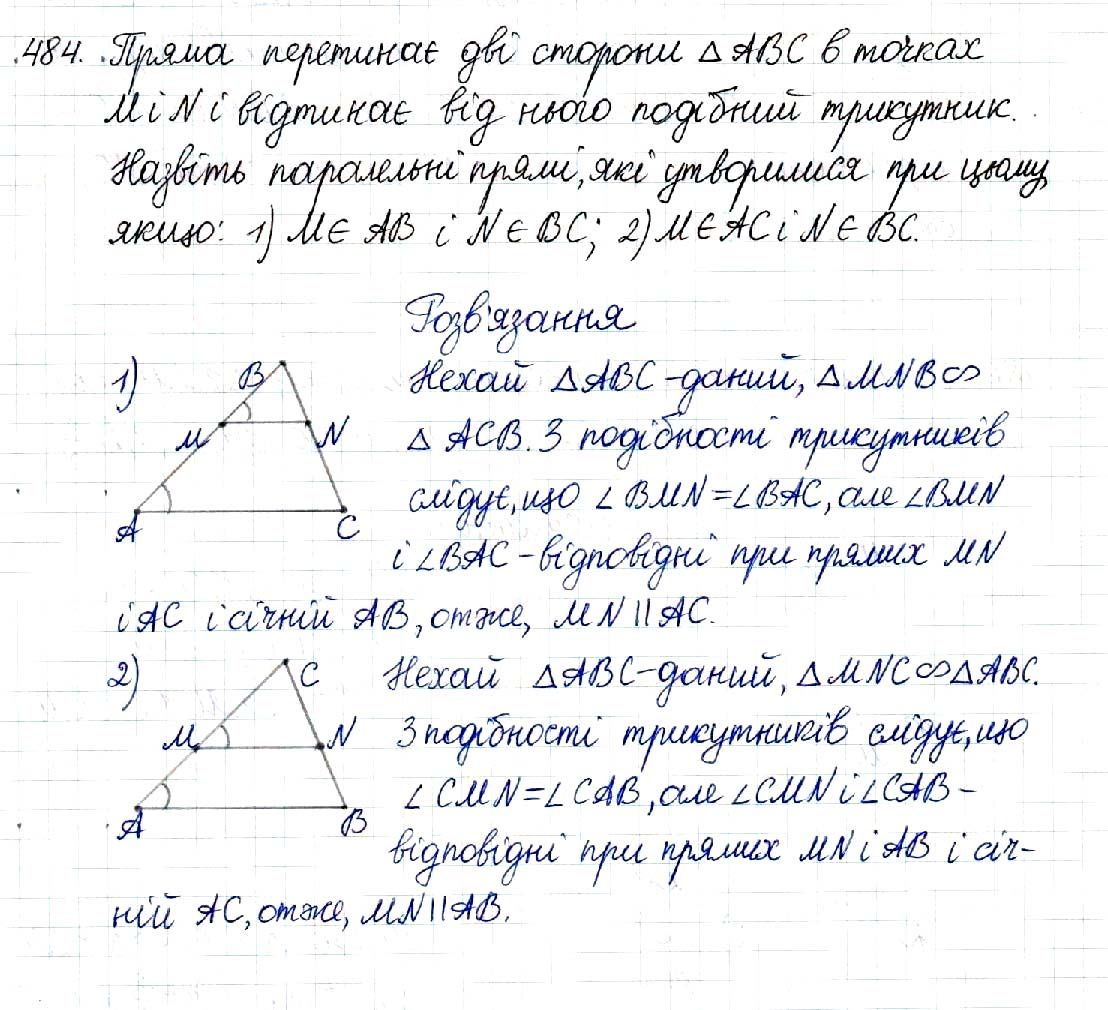 484. Пряма перетинає дві сторони △ABC в точках
M і N і відтинає від нього подібний трикутник.
Назвіть паралельні прямі, які утворилися при цьому,
якщо: 1) M ∈ AB і N ∈ BC; 2) M ∈ AC і N ∈ BC.
Розв'язання
1)
B
M
N
A
C
Нехай △ABC - даний, △MNB ∽
△ ACB. З подібності трикутників
слідує, що ∠BMN = ∠BAC, але ∠BMN
і ∠BAC - відповідні при прямих MN
і AC і січній AB, отже, MN || AC.
2)
C
M
N
A
B
Нехай △ABC - даний, △MNC ∽ △ABC.
З подібності трикутників слідує, що
∠CMN = ∠CAB, але ∠CMN і ∠CAB -
відповідні при прямих MN і AB і січ-
ній AC, отже, MN || AB.